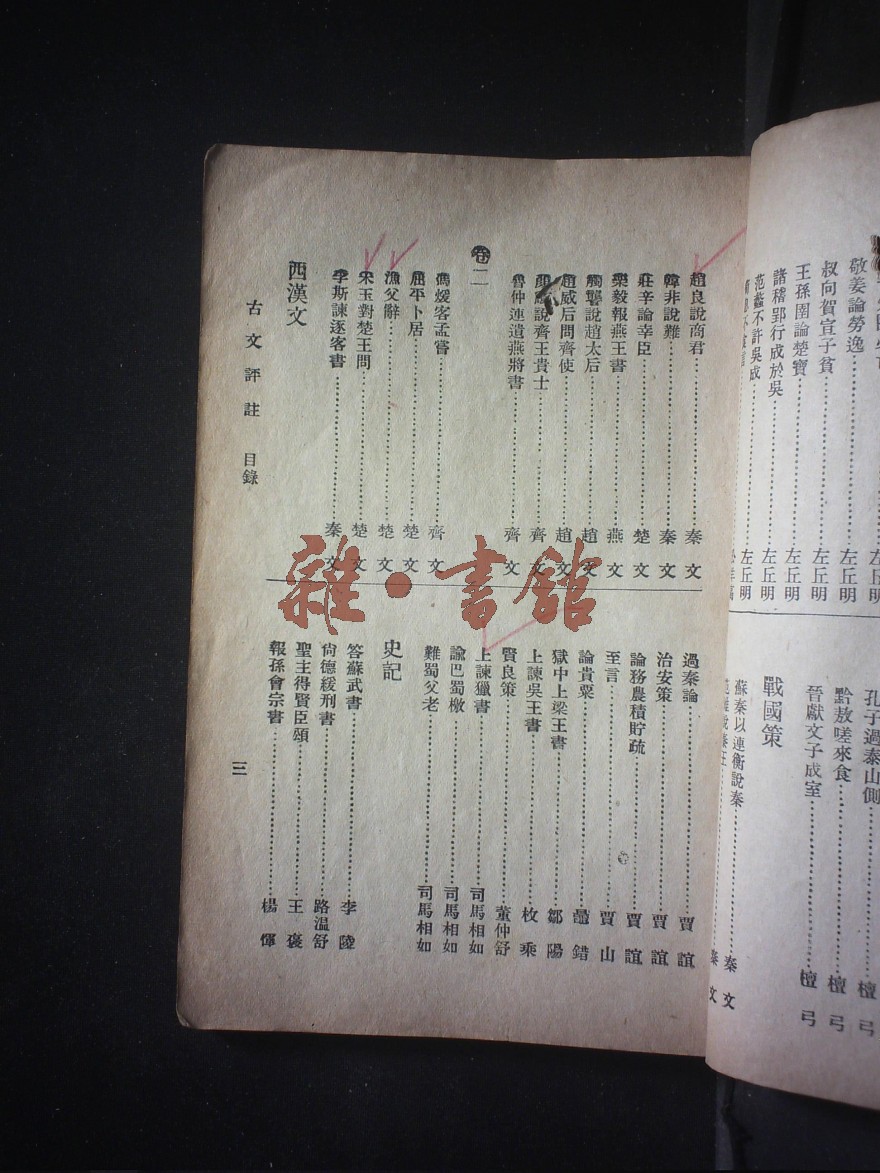 敬姜論勞逸⋯⋯左丘明
叔向賀宣子貧⋯⋯左丘明
王孫圉論楚寶⋯⋯左丘明
諸稽郢行成於吳⋯⋯左丘明
范蠡不許吳成⋯⋯左丘明
孔子過泰山側⋯⋯檀弓
黔敖嗟來食⋯⋯檀弓
晉獻文子成室⋯⋯檀弓
戰國策
蘇秦以連衡說秦⋯⋯秦文
范雎說秦王⋯⋯秦文
趙良說商君⋯⋯秦文
韓非說難⋯⋯秦文
莊辛論幸臣⋯⋯楚文
樂毅報燕王書⋯⋯燕文
觸讋說趙太后⋯⋯趙文
趙威后問齊使⋯⋯趙文
顏斶說齊王貴士⋯⋯齊文
魯仲連遺燕將書⋯⋯齊文
卷二
馮煖客孟嘗⋯⋯齊文
屈平卜居⋯⋯楚文
漁父辭⋯⋯楚文
宋玉對楚王問⋯⋯楚文
李斯諫逐客書⋯⋯秦文
西漢文
過秦論⋯⋯賈誼
治安策⋯⋯賈誼
論務農積貯疏⋯⋯賈誼
至言⋯⋯賈山
論貴粟⋯⋯鼂錯
獄中上梁王書⋯⋯鄒陽
上諫吳王書⋯⋯枚乘
賢良策⋯⋯董仲舒
上諫獵書⋯⋯司馬相如
諭巴蜀檄⋯⋯司馬相如
難蜀父老⋯⋯司馬相如
史記
答蘇武書⋯⋯李陵
尚德緩刑書⋯⋯路温舒
聖主得賢臣頌⋯⋯王褒
報孫會宗書⋯⋯楊惲
古文評註 目錄
三
雜·書館